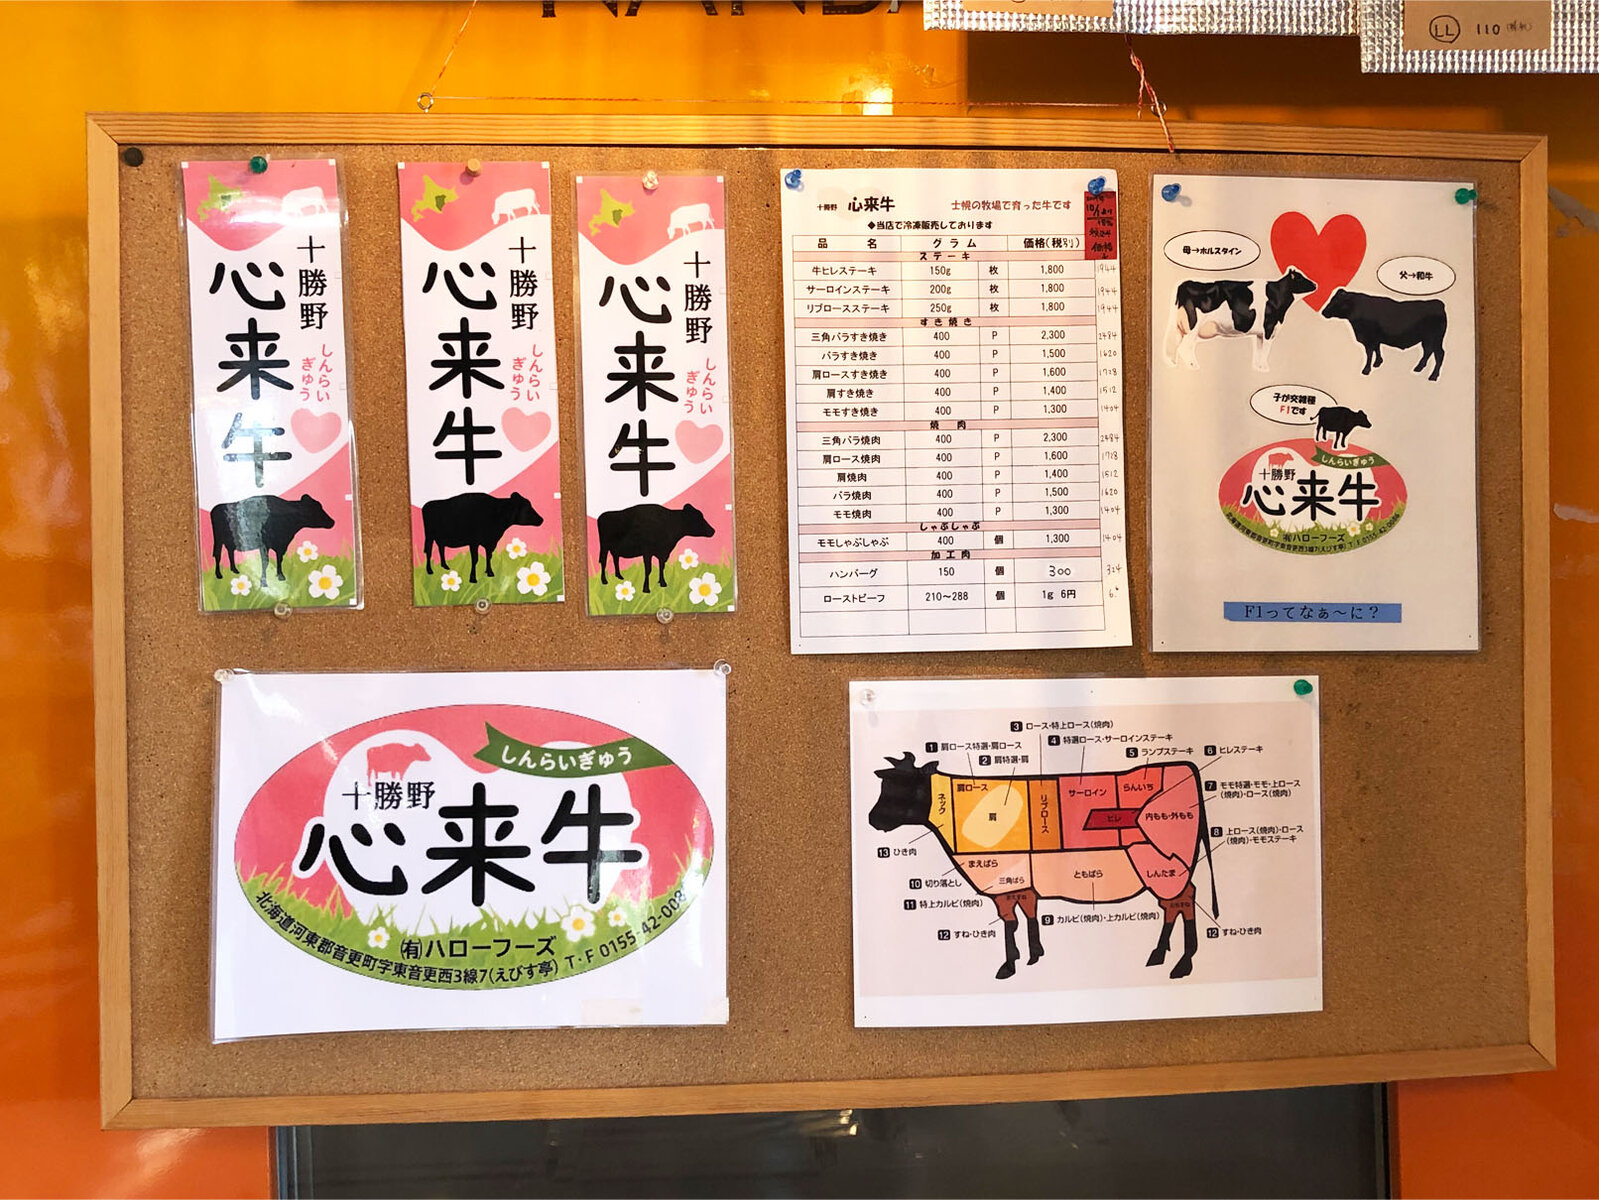 LL 110
十勝野
心来牛
しんらい
ぎゅう
十勝野
心来牛
しんらい
ぎゅう
十勝野
心来牛
しんらい
ぎゅう
十勝野 心来牛 士幌の牧場で育った牛です
◆当店で冷凍販売しております
品 名 グラム 価格(税別)
ステーキ
牛ヒレステーキ 150g 枚 1,800 1944
サーロインステーキ 200g 枚 1,800 1944
リブロースステーキ 250g 枚 1,800 1944
すき焼き
三角バラすき焼き 400 P 2,300 2484
バラすき焼き 400 P 1,500 1620
肩ロースすき焼き 400 P 1,600 1728
肩すき焼き 400 P 1,400 1512
モモすき焼き 400 P 1,300 1404
焼 肉
三角バラ焼肉 400 P 2,300 2484
肩ロース焼肉 400 P 1,600 1728
肩焼肉 400 P 1,400 1512
バラ焼肉 400 P 1,500 1620
モモ焼肉 400 P 1,300 1404
しゃぶしゃぶ
モモしゃぶしゃぶ 400 個 1,300 1404
加工肉
ハンバーグ 150 個 300 324
ローストビーフ 210～288 個 1g 6円
母→ホルスタイン
父→和牛
子が交雑種
F1です
しんらいぎゅう
十勝野
心来牛
㈲ハローフーズ
北海道河東郡音更町字東音更西3線7(えびす亭) T・F 0155-42-008
F1ってなぁ～に？
しんらいぎゅう
十勝野
心来牛
㈲ハローフーズ
北海道河東郡音更町字東音更西3線7(えびす亭) T・F 0155-42-008
3 ロース・特上ロース(焼肉)
4 特選ロース・サーロインステーキ
1 肩ロース特選・肩ロース
2 肩特選・肩
5 ランプステーキ
6 ヒレステーキ
7 モモ特選・モモ・上ロース
(焼肉)・ロース(焼肉)
8 上ロース(焼肉)・ロース
(焼肉)・モモステーキ
ネック
肩ロース
肩
リブロース
サーロイン
らんいち
ヒレ
内もも・外もも
まえばら
三角ばら
ともばら
しんたま
13 ひき肉
10 切り落とし
11 特上カルビ(焼肉)
12 すね・ひき肉
9 カルビ(焼肉)・上カルビ(焼肉)
12 すね・ひき肉